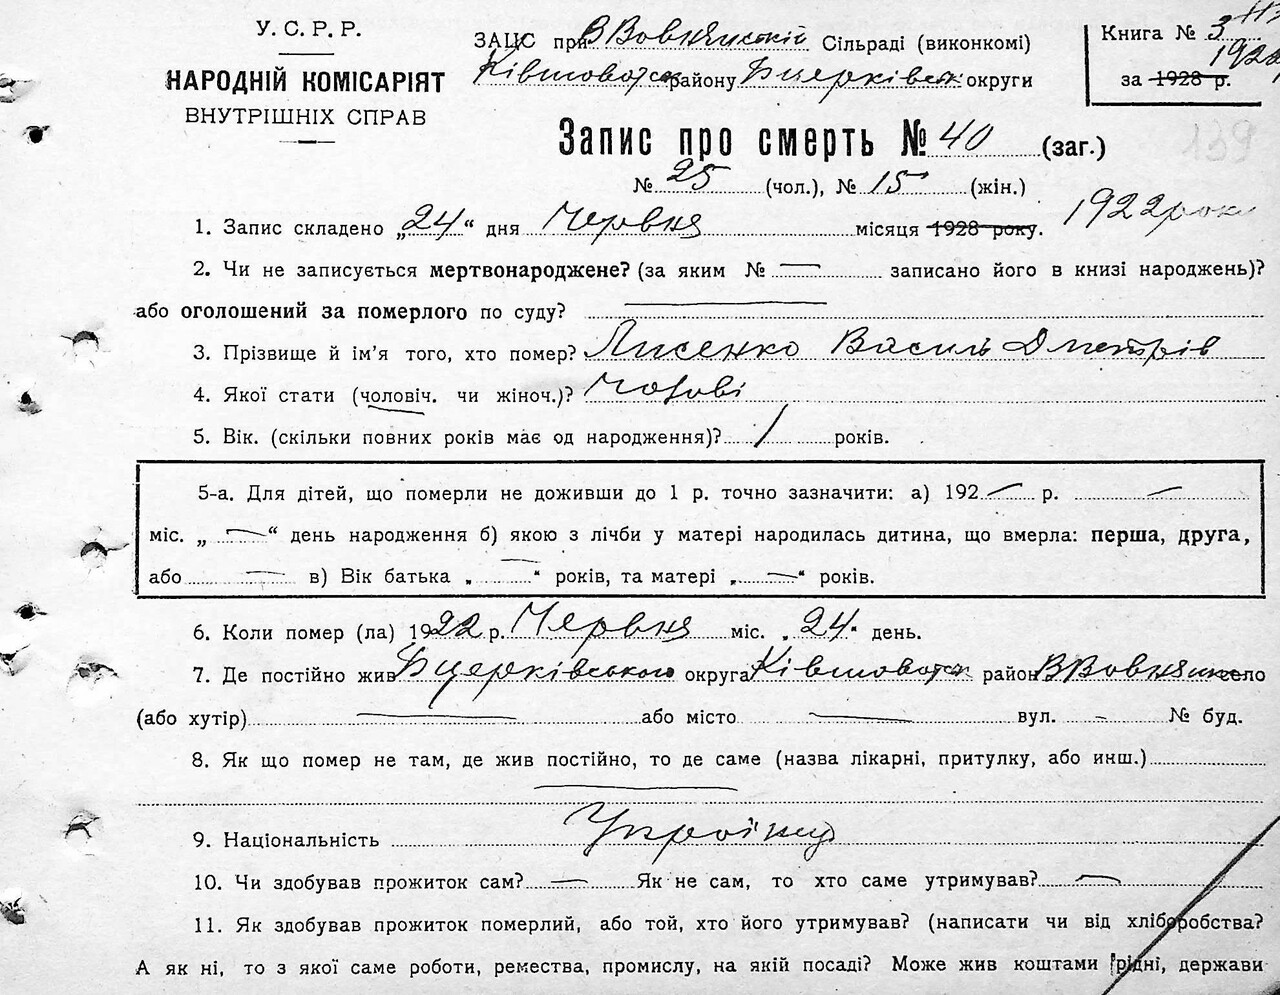 У. С. Р. Р.
НАРОДНІЙ КОМІСАРІЯТ
ВНУТРІШНІХ СПРАВ
ЗАЦС при В Вовнянській Сільраді (виконкомі)
Ківшоватськ району Бцерківськ округи
Книга № 3
за 1928 р. 1922
Запис про смерть № 40 (заг.)
139
№ 25 (чол.), № 15 (жін.)
1. Запис складено „24“ дня Червня місяця 1928 року. 1922 року
2. Чи не записується мертвонароджене? (за яким № — записано його в книзі народжень)?
або оголошений за померлого по суду? —
3. Прізвище й ім’я того, хто помер? Лисенко Василь Дмитрів
4. Якої стати (чоловіч. чи жіноч.)? Чолові
5. Вік. (скільки повних років має од народження)? 1 років.
5-а. Для дітей, що померли не доживши до 1 р. точно зазначити: а) 192 — р. —
міс. „ — “ день народження б) якою з лічби у матері народилась дитина, що вмерла: перша, друга,
або — в) Вік батька „ — “ років, та матері „ — “ років.
6. Коли помер (ла) 1922 р. Червня міс. „24“ день.
7. Де постійно жив Бцерківського округа Ківшоватськ район В Вовнянск село
(або хутір) — або місто — вул. - № буд.
8. Як що помер не там, де жив постійно, то де саме (назва лікарні, притулку, або инш.)
—
9. Національність Україец
10. Чи здобував прожиток сам? — Як не сам, то хто саме утримував? —
11. Як здобував прожиток померлий, або той, хто його утримував? (написати чи від хліборобства?
А як ні, то з якої саме роботи, ремества, промислу, на якій посаді? Може жив коштами рідні, держави